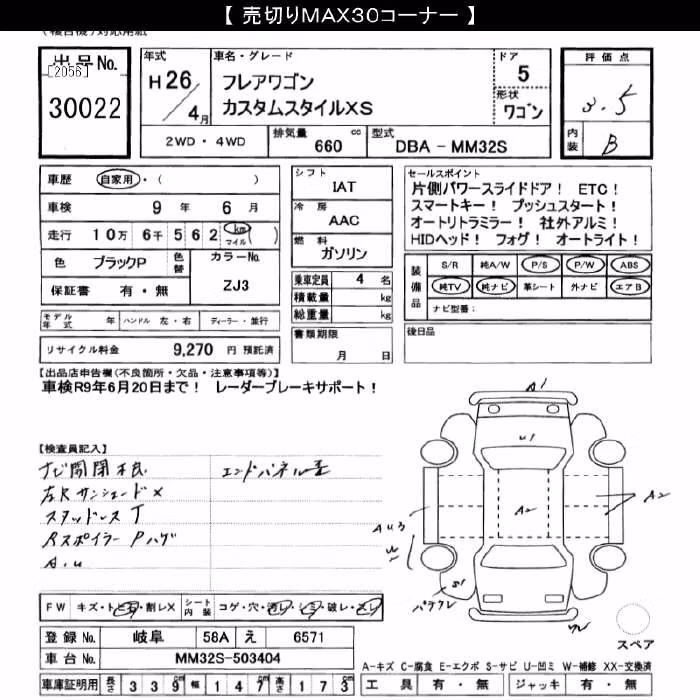 【 売切りMAX30コーナー 】
出品No.
[2056]
30022
年式
H26/4月
車名・グレード
フレアワゴン
カスタムスタイルXS
ドア
5
形状
ワゴン
評価点
3.5
内装
B
2WD・4WD
排気量 660 cc
型式 DBA-MM32S
車歴 自家用・( )
車検 9年 6月
走行 10万 6千 5 6 2 km マイル ( )
色 ブラックP 色替
カラーNo. ZJ3
保証書 有・無
モデル年式 年 ハンドル 左・右 ディーラー・並行
リサイクル料金 9,270 円 預託済
シフト
IAT
冷房
AAC
燃料
ガソリン
乗車定員 4 名
積載量 kg
総重量 kg
書類期限
月 日
セールスポイント
片側パワースライドドア! ETC!
スマートキー! プッシュスタート!
オートリトラミラー! 社外アルミ!
HIDヘッド! フォグ! オートライト!
装備品
S/R 純A/W P/S P/W ABS
純TV 純ナビ 革シート 外ナビ エアB
ナビ型番:
後日品
【出品店申告欄(不良箇所・欠品・注意事項等)】
車検R9年6月20日まで! レーダーブレーキサポート!
【検査員記入】
ナビ開閉不良
エンドパネル歪
左Rサンシェード×
スタッドレスT
RスポイラーPハゲ
A.U
A1
U1
A2
A2
AU3
W
S1
パテクレ
FW キズ・トビ石・割レX
シート内装 コゲ・穴・汚レ・シミ・破レ・スレ
登録No. 岐阜 58A え 6571
車台No. MM32S-503404
スペア
A-キズ C-腐食 E-エクボ S-サビ U-凹ミ W-補修 XX-交換済
車庫証明用 長さ 339cm 幅 147cm 高さ 173cm
工具 有・無 ジャッキ 有・無